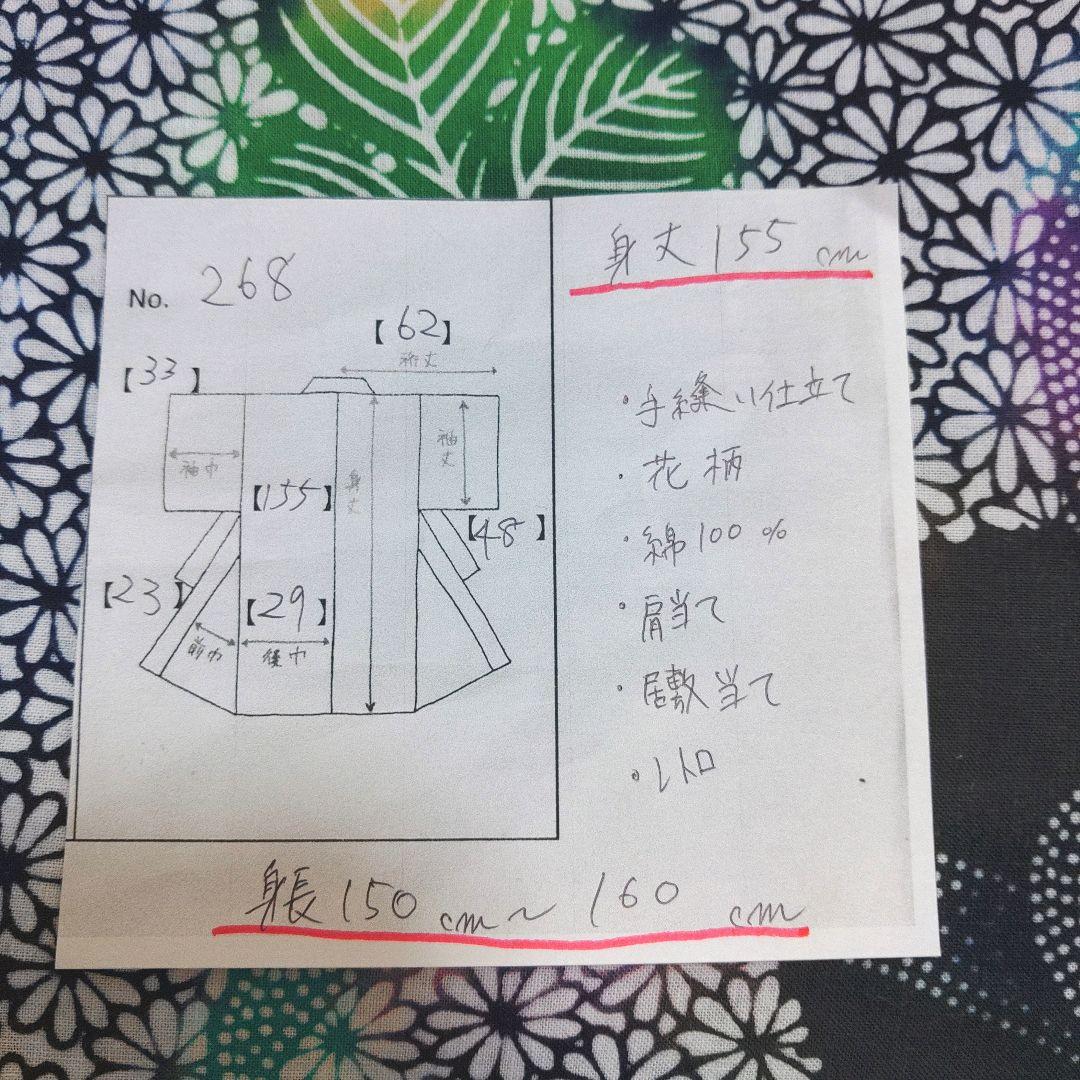 No. 268
【62】
裄丈
【33】
袖巾
袖丈
【155】
身丈
【48】
【23】
【29】
前巾
後巾
身丈155cm
・手縫い仕立て
・花柄
・綿100%
・肩当て
・居敷当て
・レトロ
身長150cm~160cm